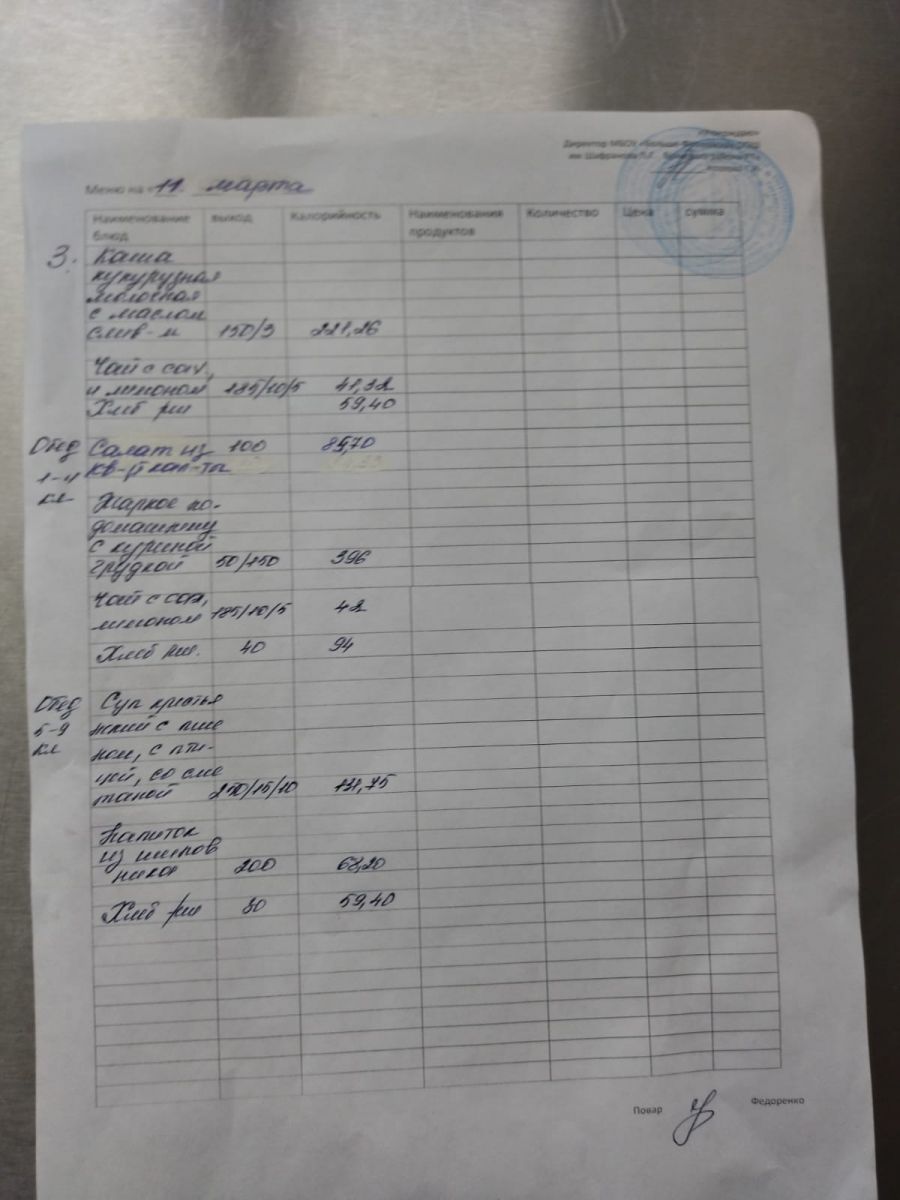 «Утверждаю»
Директор МБОУ
им. Шифранова П.Г.
Меню на «11. марта
Наименование блюд выход Калорийность Наименования продуктов Количество Цена сумма
3. Каша
кукурузная
молочная
с маслом
слив-м 150/3 221,26
Чай с сах,
и лимоном 185/10/5 41,32
Хлеб рж 59,40
Обед Салат из 100 85,70
1-4 кв-й кап-ты
кл Жаркое по-
домашнему
с куриной
грудкой 50/150 396
Чай с сах,
лимоном 185/10/5 42
Хлеб рж. 40 94
Обед Суп крестья
5-9 нский с пше
кл ном, с пти-
цей, со сме
таной 250/15/10 131,75
Напиток
из шипов
ника 200 68,20
Хлеб рж 30 59,40
Повар Федоренко